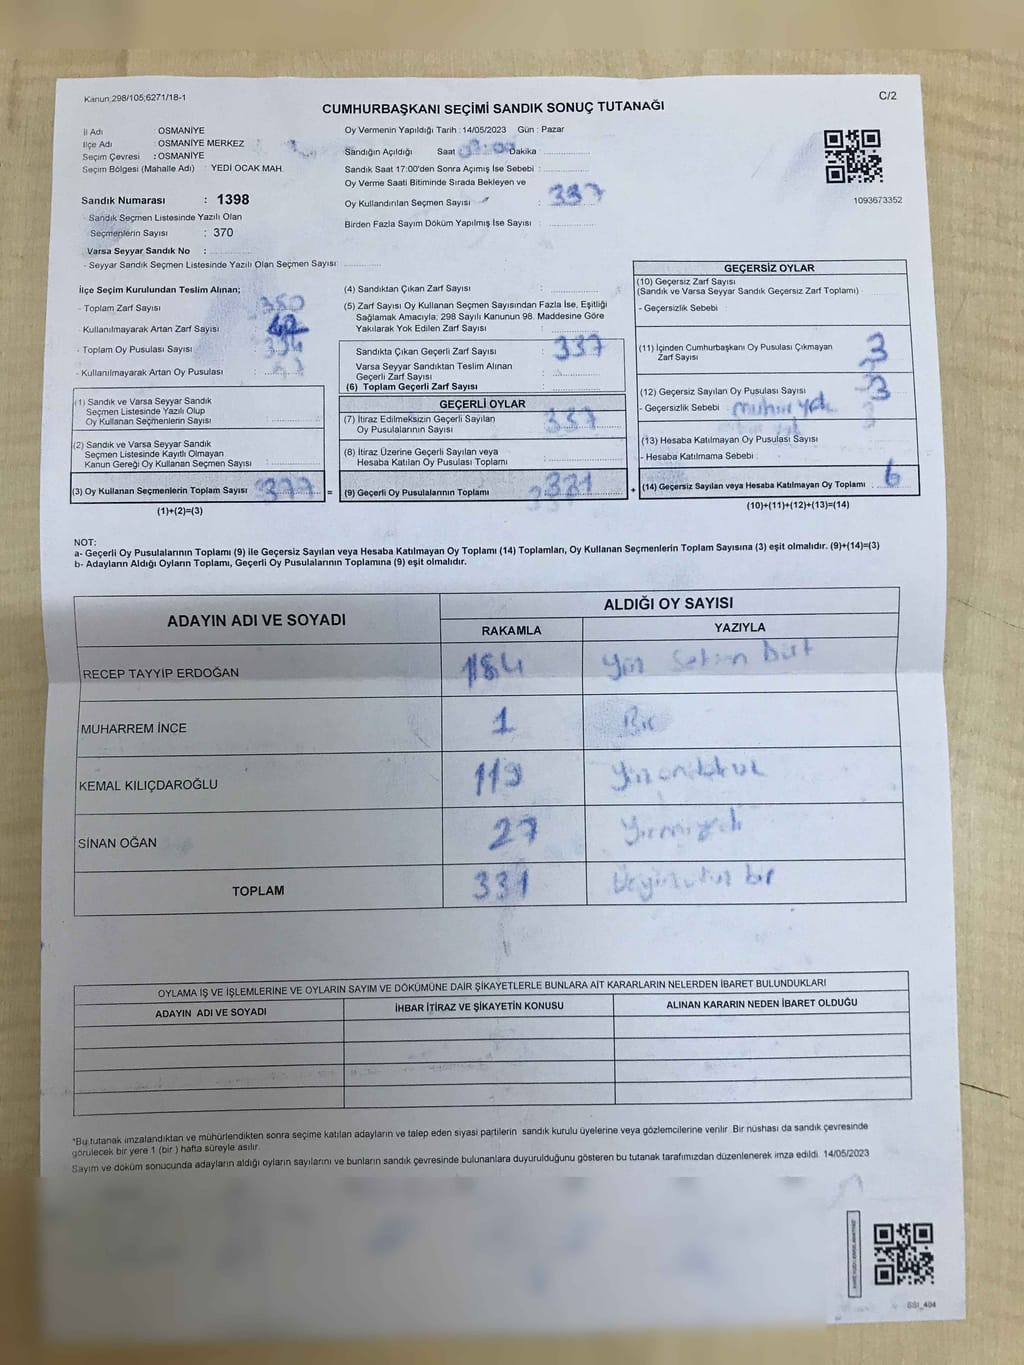 Kanun 298/105;6271/18-1
C/2
CUMHURBAŞKANI SEÇİMİ SANDIK SONUÇ TUTANAĞI
İl Adı : OSMANİYE
İlçe Adı : OSMANİYE MERKEZ
Seçim Çevresi : OSMANİYE
Seçim Bölgesi (Mahalle Adı) : YEDİ OCAK MAH.
Sandık Numarası : 1398
Sandık Seçmen Listesinde Yazılı Olan
Seçmenlerin Sayısı : 370
Varsa Seyyar Sandık No :
- Seyyar Sandık Seçmen Listesinde Yazılı Olan Seçmen Sayısı
Oy Vermenin Yapıldığı Tarih : 14/05/2023 Gün : Pazar
Sandığın Açıldığı Saat Dakika
Sandık Saat 17:00'den Sonra Açımış İse Sebebi :
Oy Verme Saati Bitiminde Sırada Bekleyen ve
Oy Kullandırılan Seçmen Sayısı : 337
Birden Fazla Sayım Döküm Yapılmış İse Sayısı :
1093673352
İlçe Seçim Kurulundan Teslim Alınan;
- Toplam Zarf Sayısı : 380
- Kullanılmayarak Artan Zarf Sayısı : 42
- Toplam Oy Pusulası Sayısı :
- Kullanılmayarak Artan Oy Pusulası :
(1) Sandık ve Varsa Seyyar Sandık
Seçmen Listesinde Yazılı Olup
Oy Kullanan Seçmenlerin Sayısı :
(2) Sandık ve Varsa Seyyar Sandık
Seçmen Listesinde Kayıtlı Olmayan
Kanun Gereği Oy Kullanan Seçmen Sayısı
(3) Oy Kullanan Seçmenlerin Toplam Sayısı 377
(1)+(2)=(3)
(4) Sandıktan Çıkan Zarf Sayısı :
(5) Zarf Sayısı Oy Kullanan Seçmen Sayısından Fazla İse, Eşitliği
Sağlamak Amacıyla; 298 Sayılı Kanunun 98. Maddesine Göre
Yakılarak Yok Edilen Zarf Sayısı :
Sandıkta Çıkan Geçerli Zarf Sayısı : 337
Varsa Seyyar Sandıktan Teslim Alınan
Geçerli Zarf Sayısı :
(6) Toplam Geçerli Zarf Sayısı :
GEÇERLİ OYLAR
(7) İtiraz Edilmeksizin Geçerli Sayılan
Oy Pusulalarının Sayısı : 337
(8) İtiraz Üzerine Geçerli Sayılan veya
Hesaba Katılan Oy Pusulası Toplamı :
= (9) Geçerli Oy Pusulalarının Toplamı : 331
GEÇERSİZ OYLAR
(10) Geçersiz Zarf Sayısı
(Sandık ve Varsa Seyyar Sandık Geçersiz Zarf Toplamı)
- Geçersizlik Sebebi :
(11) İçinden Cumhurbaşkanı Oy Pusulası Çıkmayan
Zarf Sayısı 3
(12) Geçersiz Sayılan Oy Pusulası Sayısı 3
- Geçersizlik Sebebi : mühür yok
(13) Hesaba Katılmayan Oy Pusulası Sayısı
- Hesaba Katılmama Sebebi :
+ (14) Geçersiz Sayılan veya Hesaba Katılmayan Oy Toplamı : 6
(10)+(11)+(12)+(13)=(14)
NOT:
a- Geçerli Oy Pusulalarının Toplamı (9) ile Geçersiz Sayılan veya Hesaba Katılmayan Oy Toplamı (14) Toplamları, Oy Kullanan Seçmenlerin Toplam Sayısına (3) eşit olmalıdır. (9)+(14)=(3)
b- Adayların Aldığı Oyların Toplamı, Geçerli Oy Pusulalarının Toplamına (9) eşit olmalıdır.
ADAYIN ADI VE SOYADI ALDIĞI OY SAYISI
RAKAMLA YAZIYLA
RECEP TAYYİP ERDOĞAN 184 Yüz Seksen Dört
MUHARREM İNCE 1 Bir
KEMAL KILIÇDAROĞLU 119 Yüzondokuz
SİNAN OĞAN 27 Yirmiyedi
TOPLAM 331 Üçyüzotuz bir
OYLAMA İŞ VE İŞLEMLERİNE VE OYLARIN SAYIM VE DÖKÜMÜNE DAİR ŞİKAYETLERLE BUNLARA AİT KARARLARIN NELERDEN İBARET BULUNDUKLARI
ADAYIN ADI VE SOYADI İHBAR İTİRAZ VE ŞİKAYETİN KONUSU ALINAN KARARIN NEDEN İBARET OLDUĞU
*Bu tutanak imzalandıktan ve mühürlendikten sonra seçime katılan adayların ve talep eden siyasi partilerin sandık kurulu üyelerine veya gözlemcilerine verilir. Bir nüshası da sandık çevresinde
görülecek bir yere 1 (bir) hafta süreyle asılır.
Sayım ve döküm sonucunda adayların aldığı oyların sayılarını ve bunların sandık çevresinde bulunanlara duyurulduğunu gösteren bu tutanak tarafımızdan düzenlenerek imza edildi. 14/05/2023
SSI_404